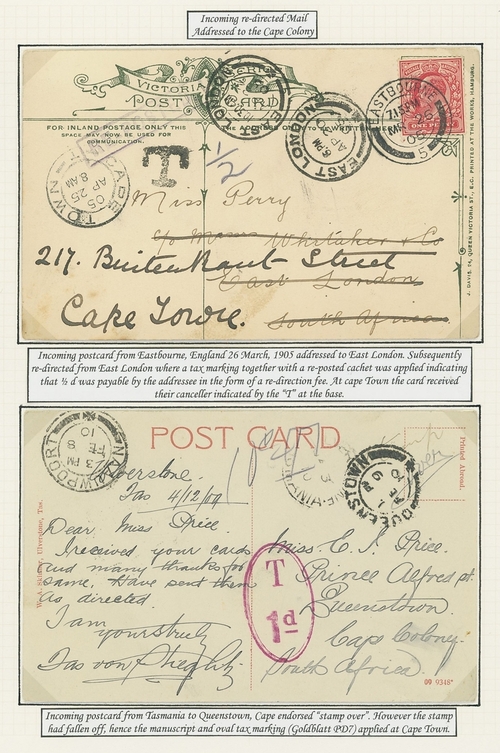 Incoming re-directed Mail
Addressed to the Cape Colony
VICTORIA
POST CARD
FOR INLAND POSTAGE ONLY THIS
SPACE MAY NOW BE USED FOR
COMMUNICATION.
EAST LONDON
EAST LONDON
EASTBOURNE
T
1/2
CAPE TOWN
8 AM
AP 25
05
Miss Perry
c/o Messrs Whitaker & Co
217. Buitenkant Street
East London
Cape Towne.
South Africa
J. DAVIS, 24, QUEEN VICTORIA ST., E.C. PRINTED AT THE WORKS, HAMBURG.
Incoming postcard from Eastbourne, England 26 March, 1905 addressed to East London. Subsequently
re-directed from East London where a tax marking together with a re-posted cachet was applied indicating
that ½ d was payable by the addressee in the form of a re-direction fee. At cape Town the card received
their canceller indicated by the "T" at the base.
POST CARD
Printed Abroad.
3 PM
8
10
QUEENSTOWN
Ulverstone.
Tas 4/12/09
Dear Miss Price.
I received your cards
and many thanks for
same. Have sent them
as directed.
I am
yours truly
Jas von Stieglitz
T
1d
Miss C. I. Price.
Prince Alfred st.
Queenstown.
Cape Colony.
South Africa.
09 9348*
Incoming postcard from Tasmania to Queenstown, Cape endorsed "stamp over". However the stamp
had fallen off, hence the manuscript and oval tax marking (Goldblatt PD7) applied at Cape Town.